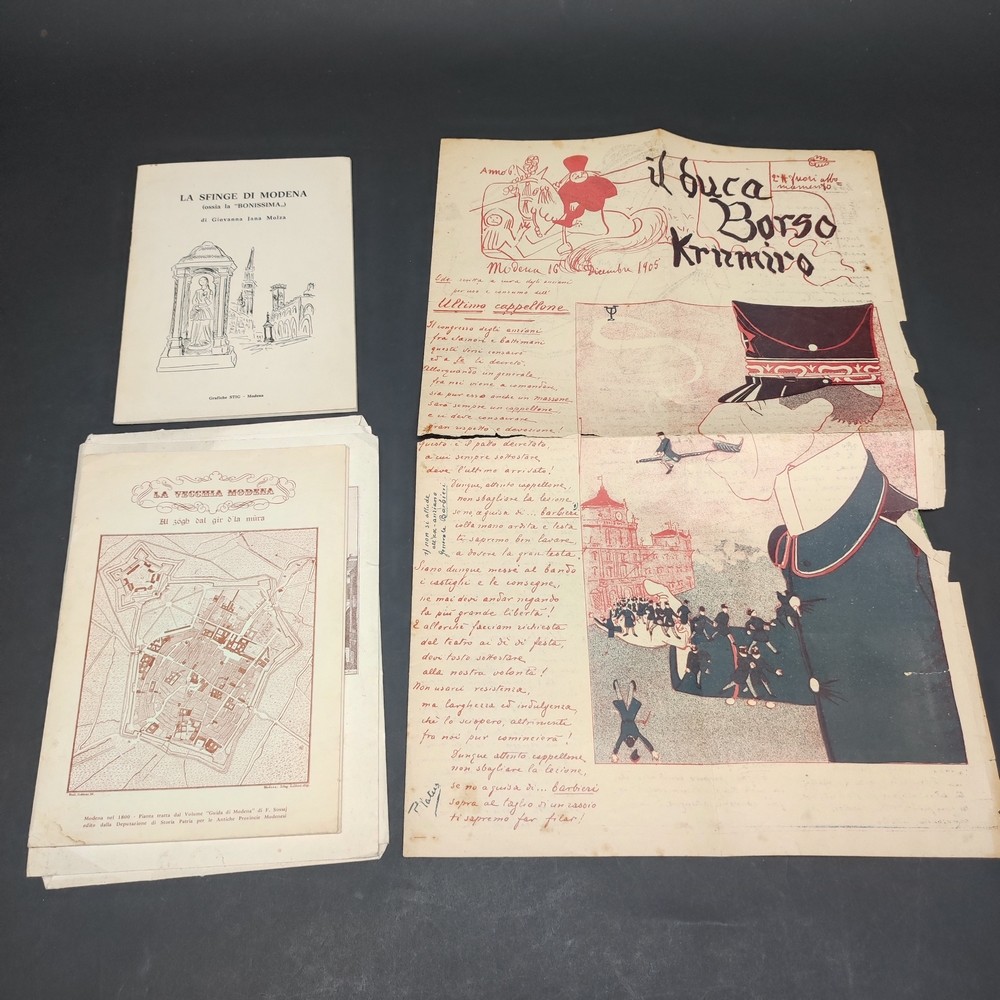 LA SFINGE DI MODENA
(ossia la "BONISSIMA„)
di Giovanna Jona Malza
Grafiche STIG - Modena
LA VECCHIA MODENA
Al zogh dal gir d'la mura
Modena nel 1800 - Pianta tratta dal Volume "Guida di Modena" di F. Sossaj
edito dalla Deputazione di Storia Patria per le Antiche Provincie Modenesi
Anno 6°
il buca
Borso
Krumiro
fuori abbo
namento
Modena 16 Dicembre 1905
Ultimo cappellone
Il congresso degli anziani
fra clamori e battimani
questi versi consacrò
ed a Te li decretò.
Allorquando un generale
fra noi viene a comandare
sia pur esso anche un massone
sarà sempre un cappellone
e ci deve conservare
gran rispetto e devozione!
Questo è il patto decretato,
a cui sempre sottostare
deve l'ultimo arrivato!
Dunque, attento cappellone,
non sbagliare la lezione,
se no, a guisa di... barbieri
colla mano ardita e lesta
ti sapremo ben lavare,
a dovere la gran testa!
Siano dunque messi al bando
i castighi e le consegne,
ne mai devi andar negando
la più grande libertà!
E allorchè facciam richiesta
del teatro ai dì di festa,
devi tosto sottostare
alla nostra volontà!
Non usarci resistenza,
ma larghezza ed indulgenza,
chè lo sciopero, altrimenti
fra noi pur comincerà!
Dunque attento cappellone
non sbagliare la lezione,
se no a guisa di... barbieri
sopra al taglio di un rascio
ti sapremo far filar!
non si allude
all'ex-anziano
generale Barbieri